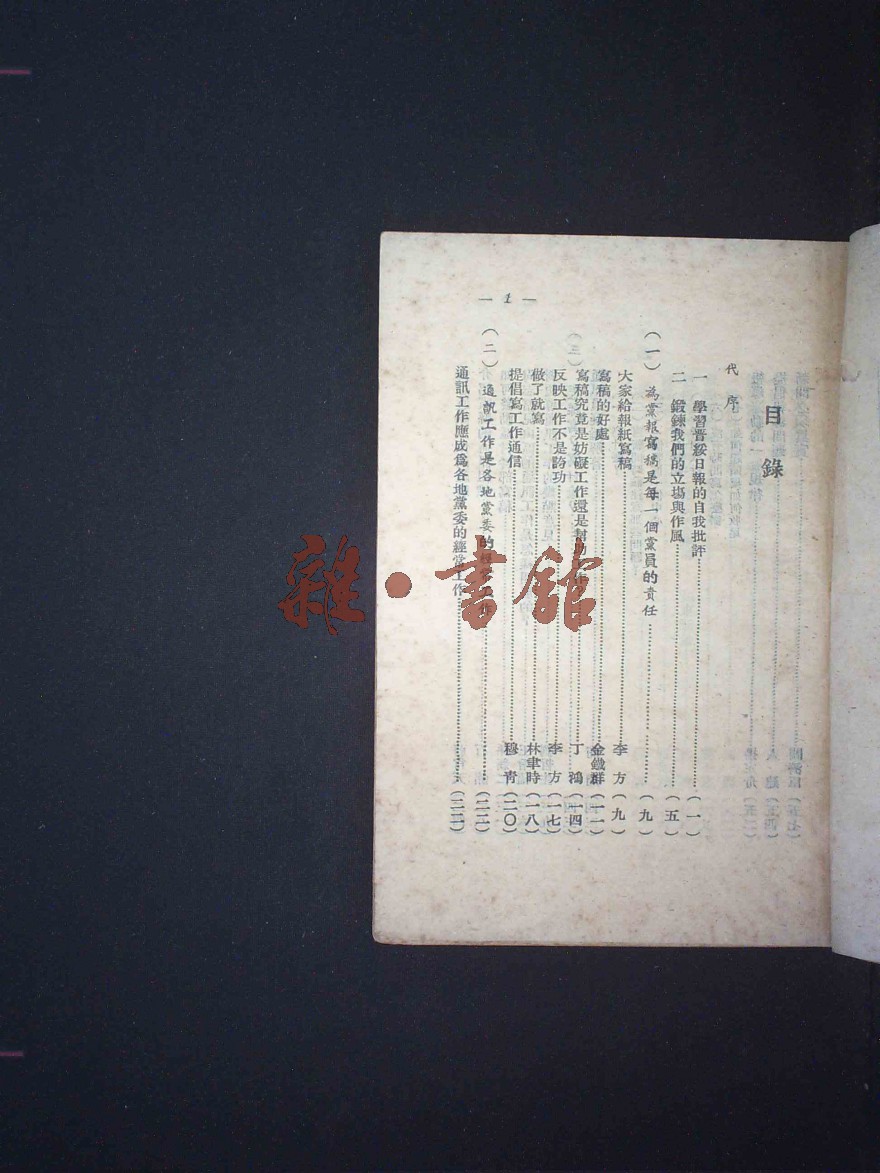 目錄
代序
一 學習晋綏日報的自我批評……(一)
二 鍛鍊我們的立塲與作風……(五)
(一) 為黨報寫稿是每一個黨員的責任……(九)
大家給報紙寫稿……李方(九)
寫稿的好處……金鐵群(一一)
寫稿究竟是妨礙工作還是幫助工作……丁鴻(一四)
反映工作不是誇功……李方(一七)
做了就寫……林聿時(一八)
提倡寫工作通信……穆青(二〇)
(二) 通訊工作是各地黨委的……(二二)
通訊工作應成爲各地黨委的經常工作……(二二)
— 1 —
雜·書館